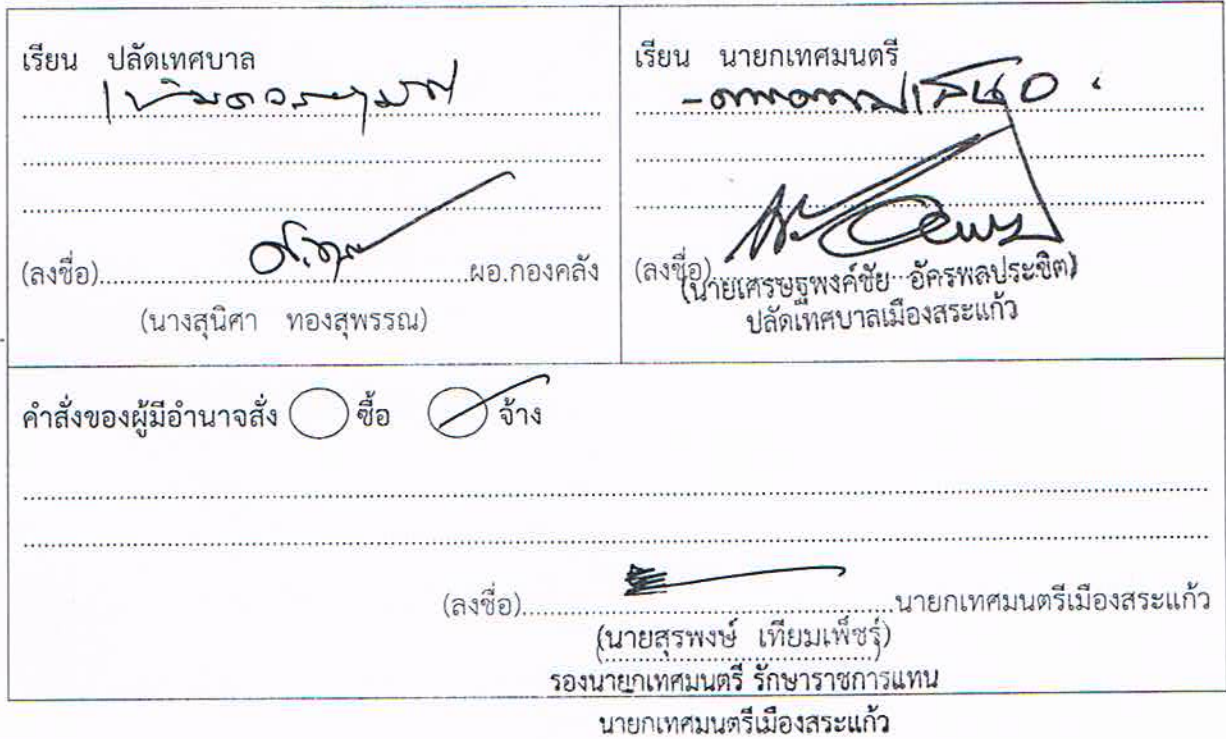 เรียน ปลัดเทศบาล
เห็นควรอนุมัติ
(ลงชื่อ)....................ผอ.กองคลัง
(นางสุนิศา ทองสุพรรณ)
เรียน นายกเทศมนตรี
(ลงชื่อ)....................
(นายเศรษฐพงศ์ชัย อัครพลประชิต)
ปลัดเทศบาลเมืองสระแก้ว
คำสั่งของผู้มีอำนาจสั่ง ซื้อ จ้าง
(ลงชื่อ)....................นายกเทศมนตรีเมืองสระแก้ว
(นายสุรพงษ์ เทียมเพ็ชร์)
รองนายกเทศมนตรี รักษาราชการแทน
นายกเทศมนตรีเมืองสระแก้ว